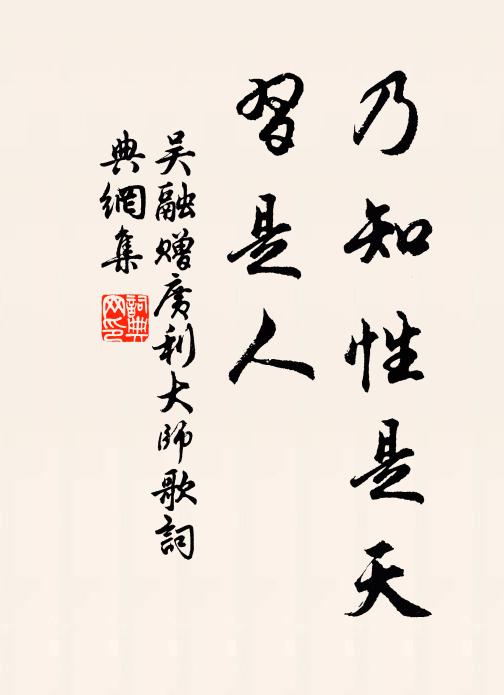 乃知性是天
習是人
吳融贈廣利大師歌詞
典網集
詞典网印